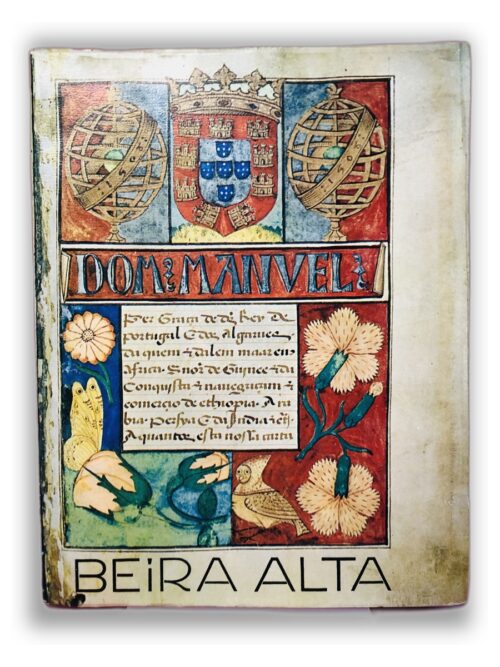 DOM: MANVEL:
Per Graça de ds Rey de
portugal E dos Algarues
da quem & dalem maar em
africa. Snor de Guinee & da
Conquista & nauegaçam &
comercio de ethiopia. Ara
bia. Persya E da India &c.
A quantos esta nossa carta
BEiRA ALTA